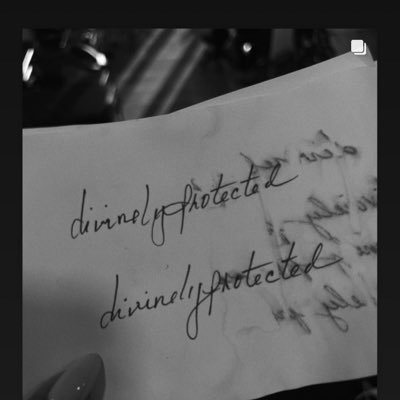 divinely protected
divinely protected